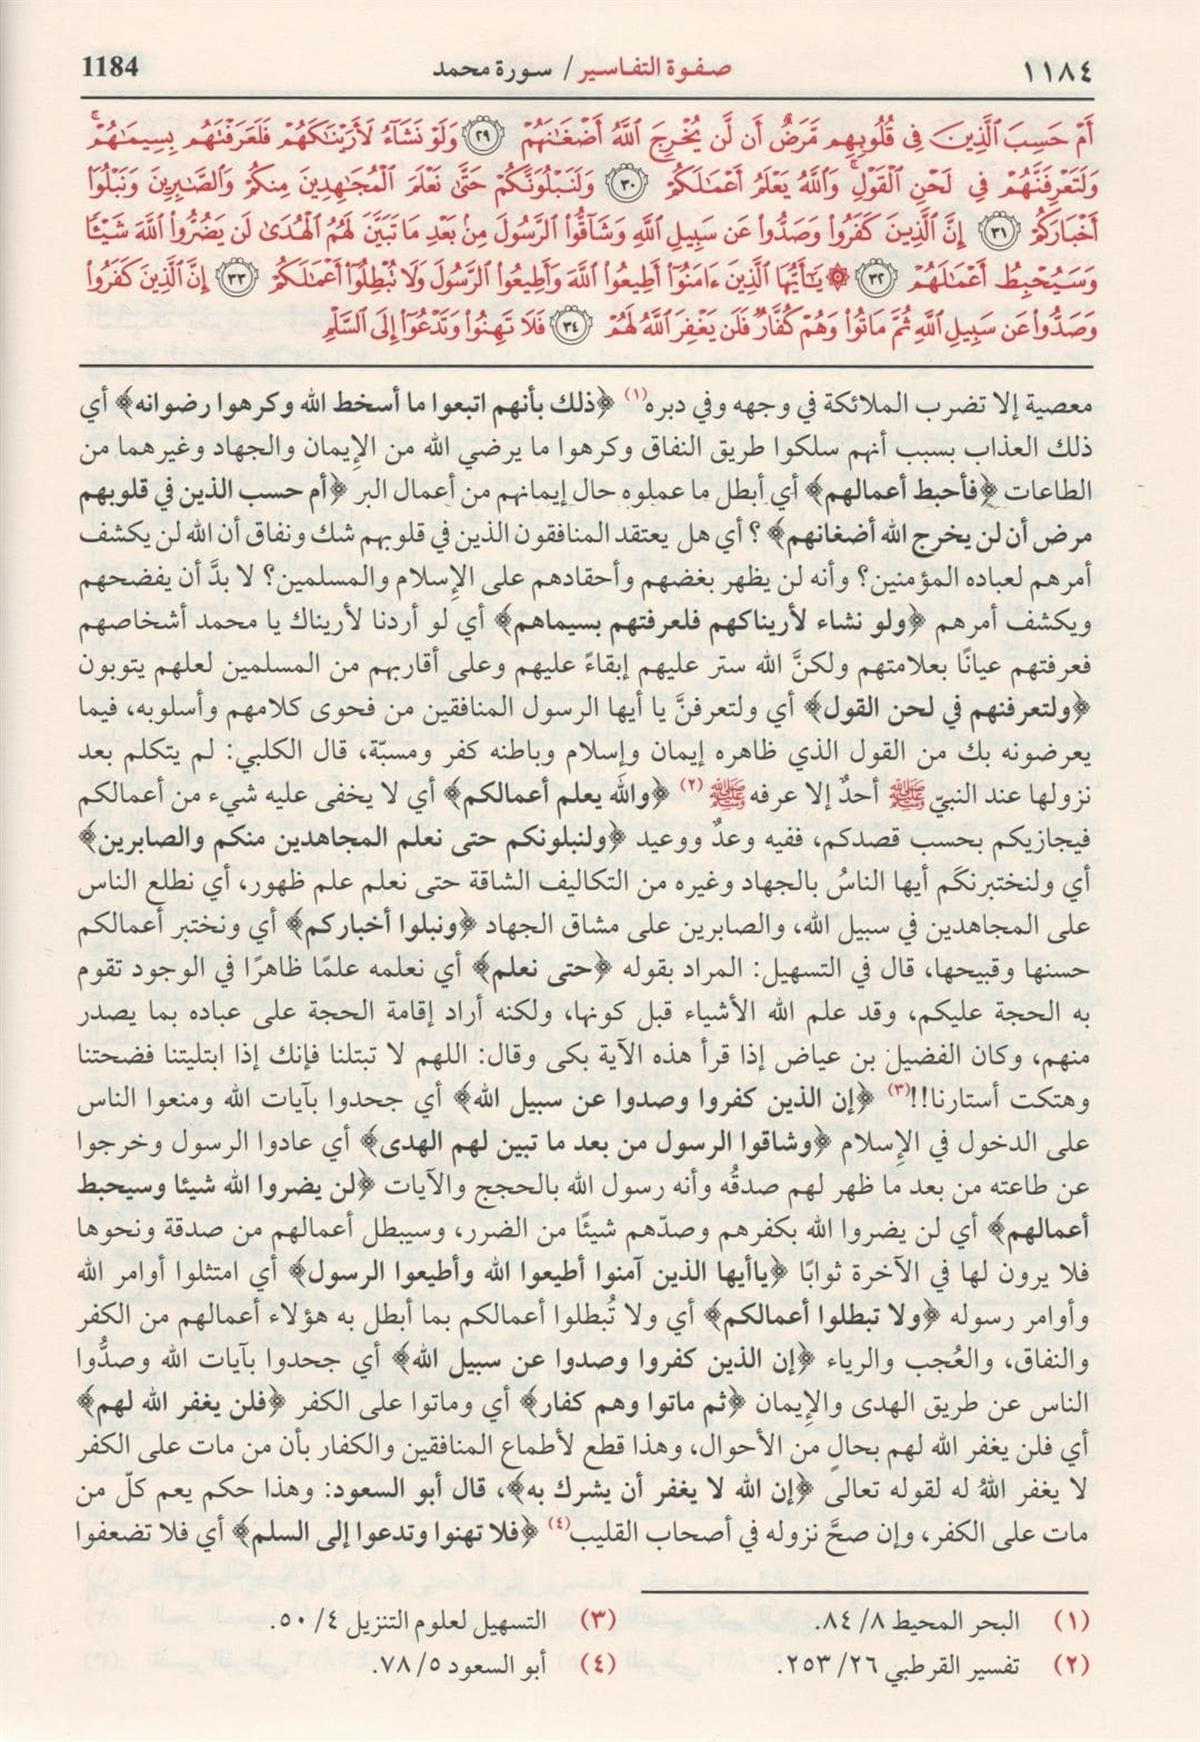 ١١٨٤ صفوة التفاسير / سورة محمد 1184
أَمْ حَسِبَ ٱلَّذِينَ فِى قُلُوبِهِم مَّرَضٌ أَن لَّن يُخْرِجَ ٱللَّهُ أَضْغَـٰنَهُمْ ٢٩ وَلَوْ نَشَآءُ لَأَرَيْنَـٰكَهُمْ فَلَعَرَفْتَهُم بِسِيمَـٰهُمْ ۚ
وَلَتَعْرِفَنَّهُمْ فِى لَحْنِ ٱلْقَوْلِ ۚ وَٱللَّهُ يَعْلَمُ أَعْمَـٰلَكُمْ ٣٠ وَلَنَبْلُوَنَّكُمْ حَتَّىٰ نَعْلَمَ ٱلْمُجَـٰهِدِينَ مِنكُمْ وَٱلصَّـٰبِرِينَ وَنَبْلُوَا۟
أَخْبَارَكُمْ ٣١ إِنَّ ٱلَّذِينَ كَفَرُوا۟ وَصَدُّوا۟ عَن سَبِيلِ ٱللَّهِ وَشَآقُّوا۟ ٱلرَّسُولَ مِنۢ بَعْدِ مَا تَبَيَّنَ لَهُمُ ٱلْهُدَىٰ لَن يَضُرُّوا۟ ٱللَّهَ شَيْـًٔا
وَسَيُحْبِطُ أَعْمَـٰلَهُمْ ٣٢ ۞ يَـٰٓأَيُّهَا ٱلَّذِينَ ءَامَنُوٓا۟ أَطِيعُوا۟ ٱللَّهَ وَأَطِيعُوا۟ ٱلرَّسُولَ وَلَا تُبْطِلُوٓا۟ أَعْمَـٰلَكُمْ ٣٣ إِنَّ ٱلَّذِينَ كَفَرُوا۟
وَصَدُّوا۟ عَن سَبِيلِ ٱللَّهِ ثُمَّ مَاتُوا۟ وَهُمْ كُفَّارٌ فَلَن يَغْفِرَ ٱللَّهُ لَهُمْ ٣٤ فَلَا تَهِنُوا۟ وَتَدْعُوٓا۟ إِلَى ٱلسَّلْمِ
معصية إلا تضرب الملائكة في وجهه وفي دبره(١) ﴿ذلك بأنهم اتبعوا ما أسخط الله وكرهوا رضوانه﴾ أي
ذلك العذاب بسبب أنهم سلكوا طريق النفاق وكرهوا ما يرضي الله من الإِيمان والجهاد وغيرهما من
الطاعات ﴿فأحبط أعمالهم﴾ أي أبطل ما عملوه حال إيمانهم من أعمال البر ﴿أم حسب الذين في قلوبهم
مرض أن لن يخرج الله أضغانهم﴾ ؟ أي هل يعتقد المنافقون الذين في قلوبهم شك ونفاق أن الله لن يكشف
أمرهم لعباده المؤمنين؟ وأنه لن يظهر بغضهم وأحقادهم على الإِسلام والمسلمين؟ لا بدَّ أن يفضحهم
ويكشف أمرهم ﴿ولو نشاء لأريناكهم فلعرفتهم بسيماهم﴾ أي لو أردنا لأريناك يا محمد أشخاصهم
فعرفتهم عيانًا بعلامتهم ولكنَّ الله ستر عليهم إبقاءً عليهم وعلى أقاربهم من المسلمين لعلهم يتوبون
﴿ولتعرفنهم في لحن القول﴾ أي ولتعرفنَّ يا أيها الرسول المنافقين من فحوى كلامهم وأسلوبه، فيما
يعرضونه بك من القول الذي ظاهره إيمان وإسلام وباطنه كفر ومسبّة، قال الكلبي: لم يتكلم بعد
نزولها عند النبيّ ﷺ أحدٌ إلا عرفه ﷺ (٢) ﴿والله يعلم أعمالكم﴾ أي لا يخفى عليه شيء من أعمالكم
فيجازيكم بحسب قصدكم، ففيه وعدٌ ووعيد ﴿ولنبلونكم حتى نعلم المجاهدين منكم والصابرين﴾
أي ولنختبرنكَم أيها الناسُ بالجهاد وغيره من التكاليف الشاقة حتى نعلم علم ظهور، أي نطلع الناس
على المجاهدين في سبيل الله، والصابرين على مشاق الجهاد ﴿ونبلوا أخباركم﴾ أي ونختبر أعمالكم
حسنها وقبيحها، قال في التسهيل: المراد بقوله ﴿حتى نعلم﴾ أي نعلمه علمًا ظاهرًا في الوجود تقوم
به الحجة عليكم، وقد علم الله الأشياء قبل كونها، ولكنه أراد إقامة الحجة على عباده بما يصدر
منهم، وكان الفضيل بن عياض إذا قرأ هذه الآية بكى وقال: اللهم لا تبتلنا فإنك إذا ابتليتنا فضحتنا
وهتكت أستارنا!!(٣) ﴿إن الذين كفروا وصدوا عن سبيل الله﴾ أي جحدوا بآيات الله ومنعوا الناس
على الدخول في الإِسلام ﴿وشاقوا الرسول من بعد ما تبين لهم الهدى﴾ أي عادوا الرسول وخرجوا
عن طاعته من بعد ما ظهر لهم صدقُه وأنه رسول الله بالحجج والآيات ﴿لن يضروا الله شيئا وسيحبط
أعمالهم﴾ أي لن يضروا الله بكفرهم وصدّهم شيئًا من الضرر، وسيبطل أعمالهم من صدقة ونحوها
فلا يرون لها في الآخرة ثوابًا ﴿ياأيها الذين آمنوا أطيعوا الله وأطيعوا الرسول﴾ أي امتثلوا أوامر الله
وأوامر رسوله ﴿ولا تبطلوا أعمالكم﴾ أي ولا تُبطلوا أعمالكم بما أبطل به هؤلاء أعمالهم من الكفر
والنفاق، والعُجب والرياء ﴿إن الذين كفروا وصدوا عن سبيل الله﴾ أي جحدوا بآيات الله وصدُّوا
الناس عن طريق الهدى والإِيمان ﴿ثم ماتوا وهم كفار﴾ أي وماتوا على الكفر ﴿فلن يغفر الله لهم﴾
أي فلن يغفر الله لهم بحالٍ من الأحوال، وهذا قطع لأطماع المنافقين والكفار بأن من مات على الكفر
لا يغفر اللهُ له لقوله تعالى ﴿إن الله لا يغفر أن يشرك به﴾، قال أبو السعود: وهذا حكم يعم كلّ من
مات على الكفر، وإن صحَّ نزوله في أصحاب القليب(٤) ﴿فلا تهنوا وتدعوا إلى السلم﴾ أي فلا تضعفوا
(١) البحر المحيط ٨/ ٨٤.
(٢) تفسير القرطبي ٢٦/ ٢٥٣.
(٣) التسهيل لعلوم التنزيل ٤/ ٥٠.
(٤) أبو السعود ٥/ ٧٨.